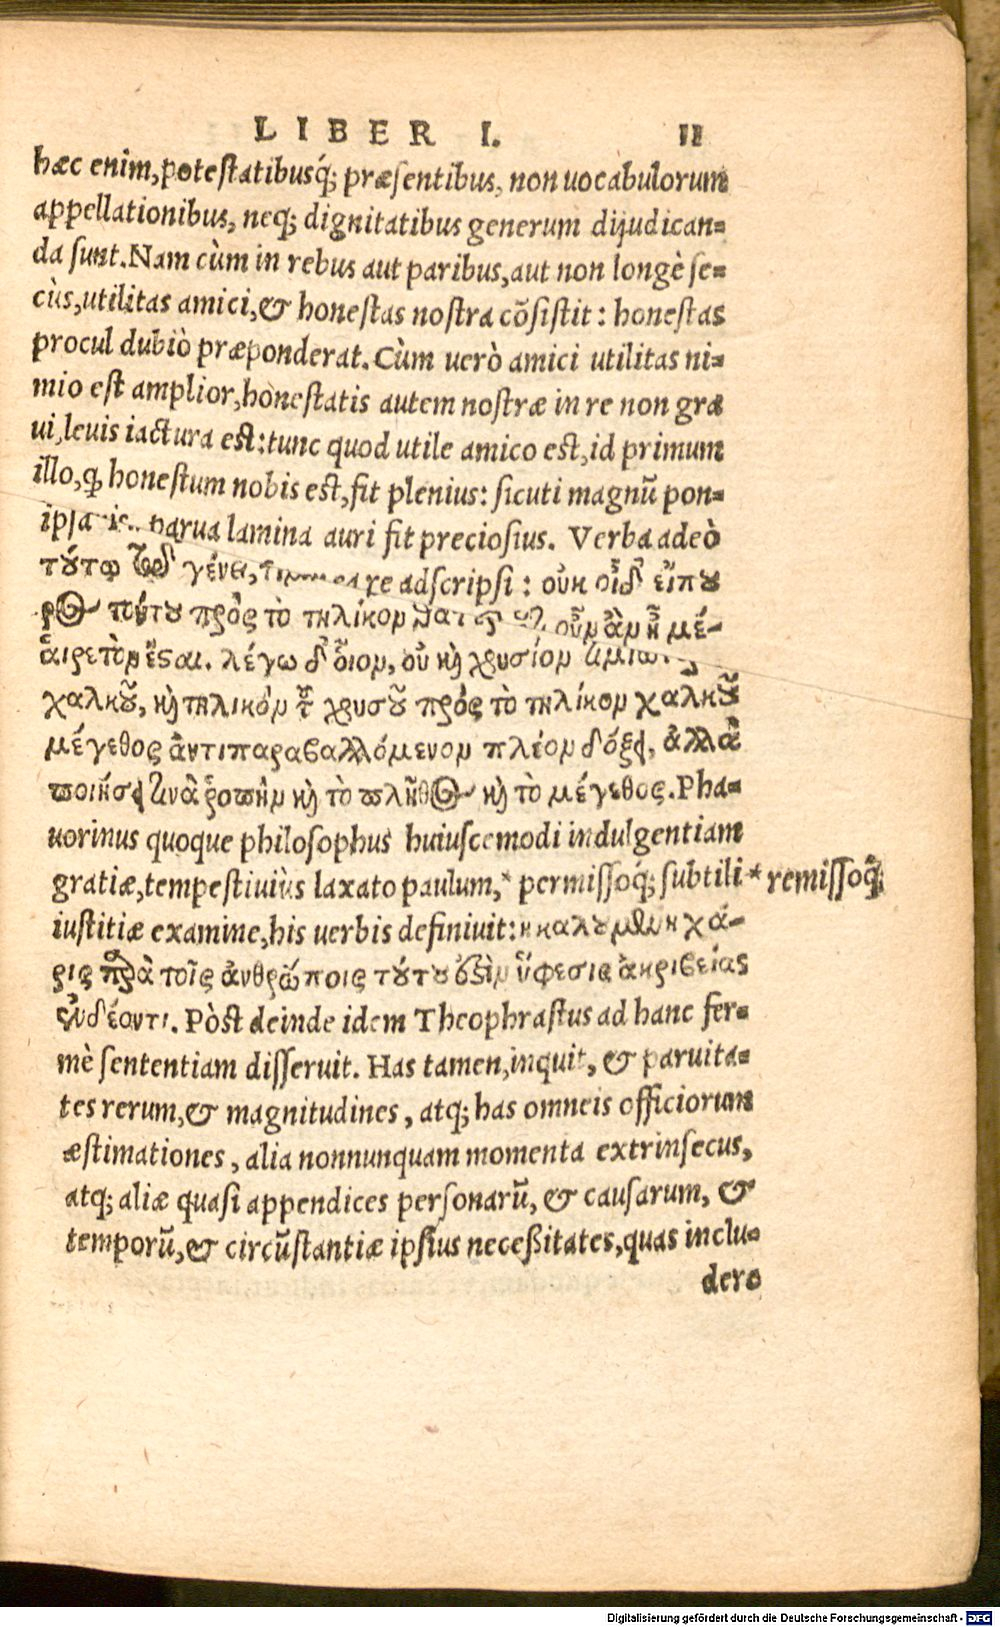 LIBER I. 11
hæc enim, potestatibusq́; præsentibus, non uocabulorum
appellationibus, neq; dignitatibus generum dijudican-
da sunt. Nam cùm in rebus aut paribus, aut non longè se-
cùs, utilitas amici, & honestas nostra cōsistit: honestas
procul dubiò præponderat. Cùm uerò amici utilitas ni-
mio est amplior, honestatis autem nostræ in re non gra
ui, leuis iactura est: tunc quod utile amico est, id primum
illo, ꝙ honestum nobis est, fit plenius: sicuti magnū pon-
parua lamina auri fit preciosius. Verba adeò
τούτῳ γένει, adscripsi: οὐκ οἶδ' εἴπου
τούτου πρὸς τὸ τηλίκον οὖν ἂν ᾖ μέ-
αἱρετὸν ἔσαι. λέγω δ' οἷον, οὐ καὶ χρυσίον
χαλκοῦ, καὶ τηλικὸν τοῦ χρυσοῦ πρὸς τὸ τηλίκον χαλκοῦ
μέγεθος ἀντιπαραβαλλόμενον πλέον δόξει, ἀλλὰ
ποιήσει τινὰ ῥοπὴν καὶ τὸ πλῆθος καὶ τὸ μέγεθος. Pha-
uorinus quoque philosophus huiuscemodi indulgentiam
gratiæ, tempestiuiùs laxato paulum,* permissoq́; subtili * remissoq́;
iustitiæ examine, his uerbis definiuit: ἡ καλουμένη χά-
ρις παρὰ τοῖς ἀνθρώποις τούτου ἐξὶν ὕφεσις ἀκριβείας
ἐν δέοντι. Pòst deinde idem Theophrastus ad hanc fer-
mè sententiam disseruit. Has tamen, inquit, & paruita-
tes rerum, & magnitudines, atq; has omneis officiorum
æstimationes, alia nonnunquam momenta extrinsecus,
atq; aliæ quasi appendices personarū, & causarum, &
temporū, & circūstantiæ ipsius neceßitates, quas inclu-
dere
Digitalisierung gefördert durch die Deutsche Forschungsgemeinschaft - DFG